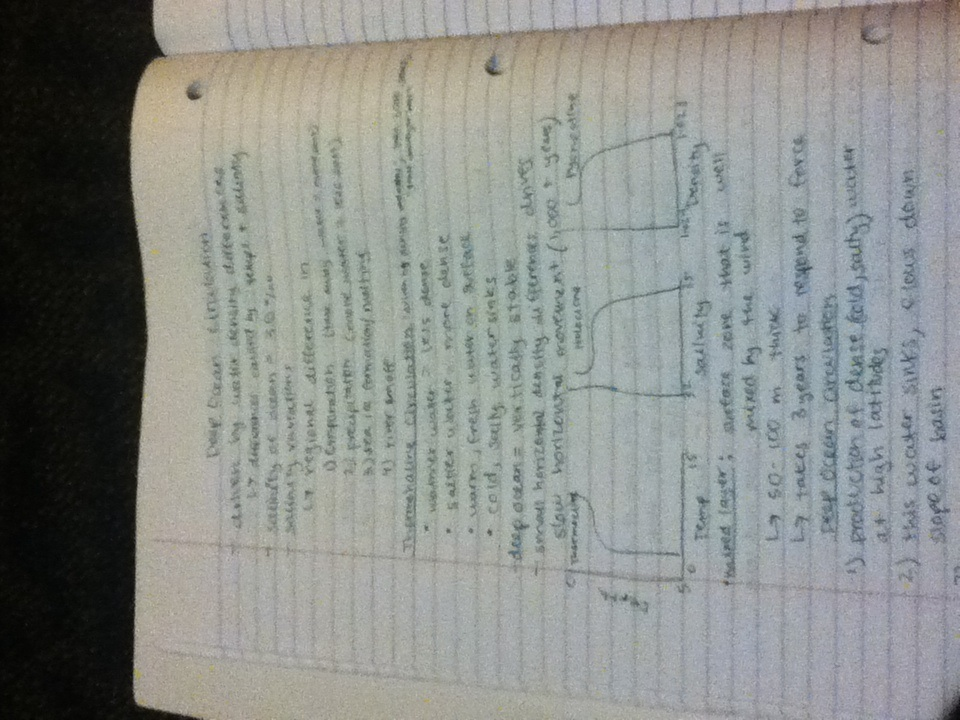 Deep Ocean Circulation
- driven by water density differences
↳ differences caused by temp + salinity
- salinity of ocean = 35 ‰
salinity variations
↳ regional difference in
1) evaporation
2) precipitation (more water =
3) sea ice formation/melting
4) river runoff
Thermohaline Circulation
• warmer water = less dense
• saltier water = more dense
• warm, fresh water on surface
• cold, salty water sinks
deep ocean = vertically stable
- small horizontal density differences drives
slow horizontal movement (1,000 + years)
0 Thermocline
Halocline
Pycnocline
5 0
Temp
Salinity
Density
*mixed layer: surface zone that is well
mixed by the wind
↳ 50-100 m thick
↳ takes 3 years to respond to force
Deep ocean circulation
1) production of dense (cold, salty) water
at high latitudes
2) this water sinks, flows down
slope of basin